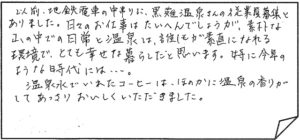 以前、地鉄電車の中吊りに、黒薙温泉さんの従業員募集と
ありました。日々のお仕事はたいへんでしょうが、素朴な
山の中での日常と温泉は、誰もが素直になれる
環境で、とても幸せな暮らしだと思います。特に今年の
ような時代には…。
温泉水でいれたコーヒーは、ほのかに温泉の香りが
してあっさりおいしくいただきました。